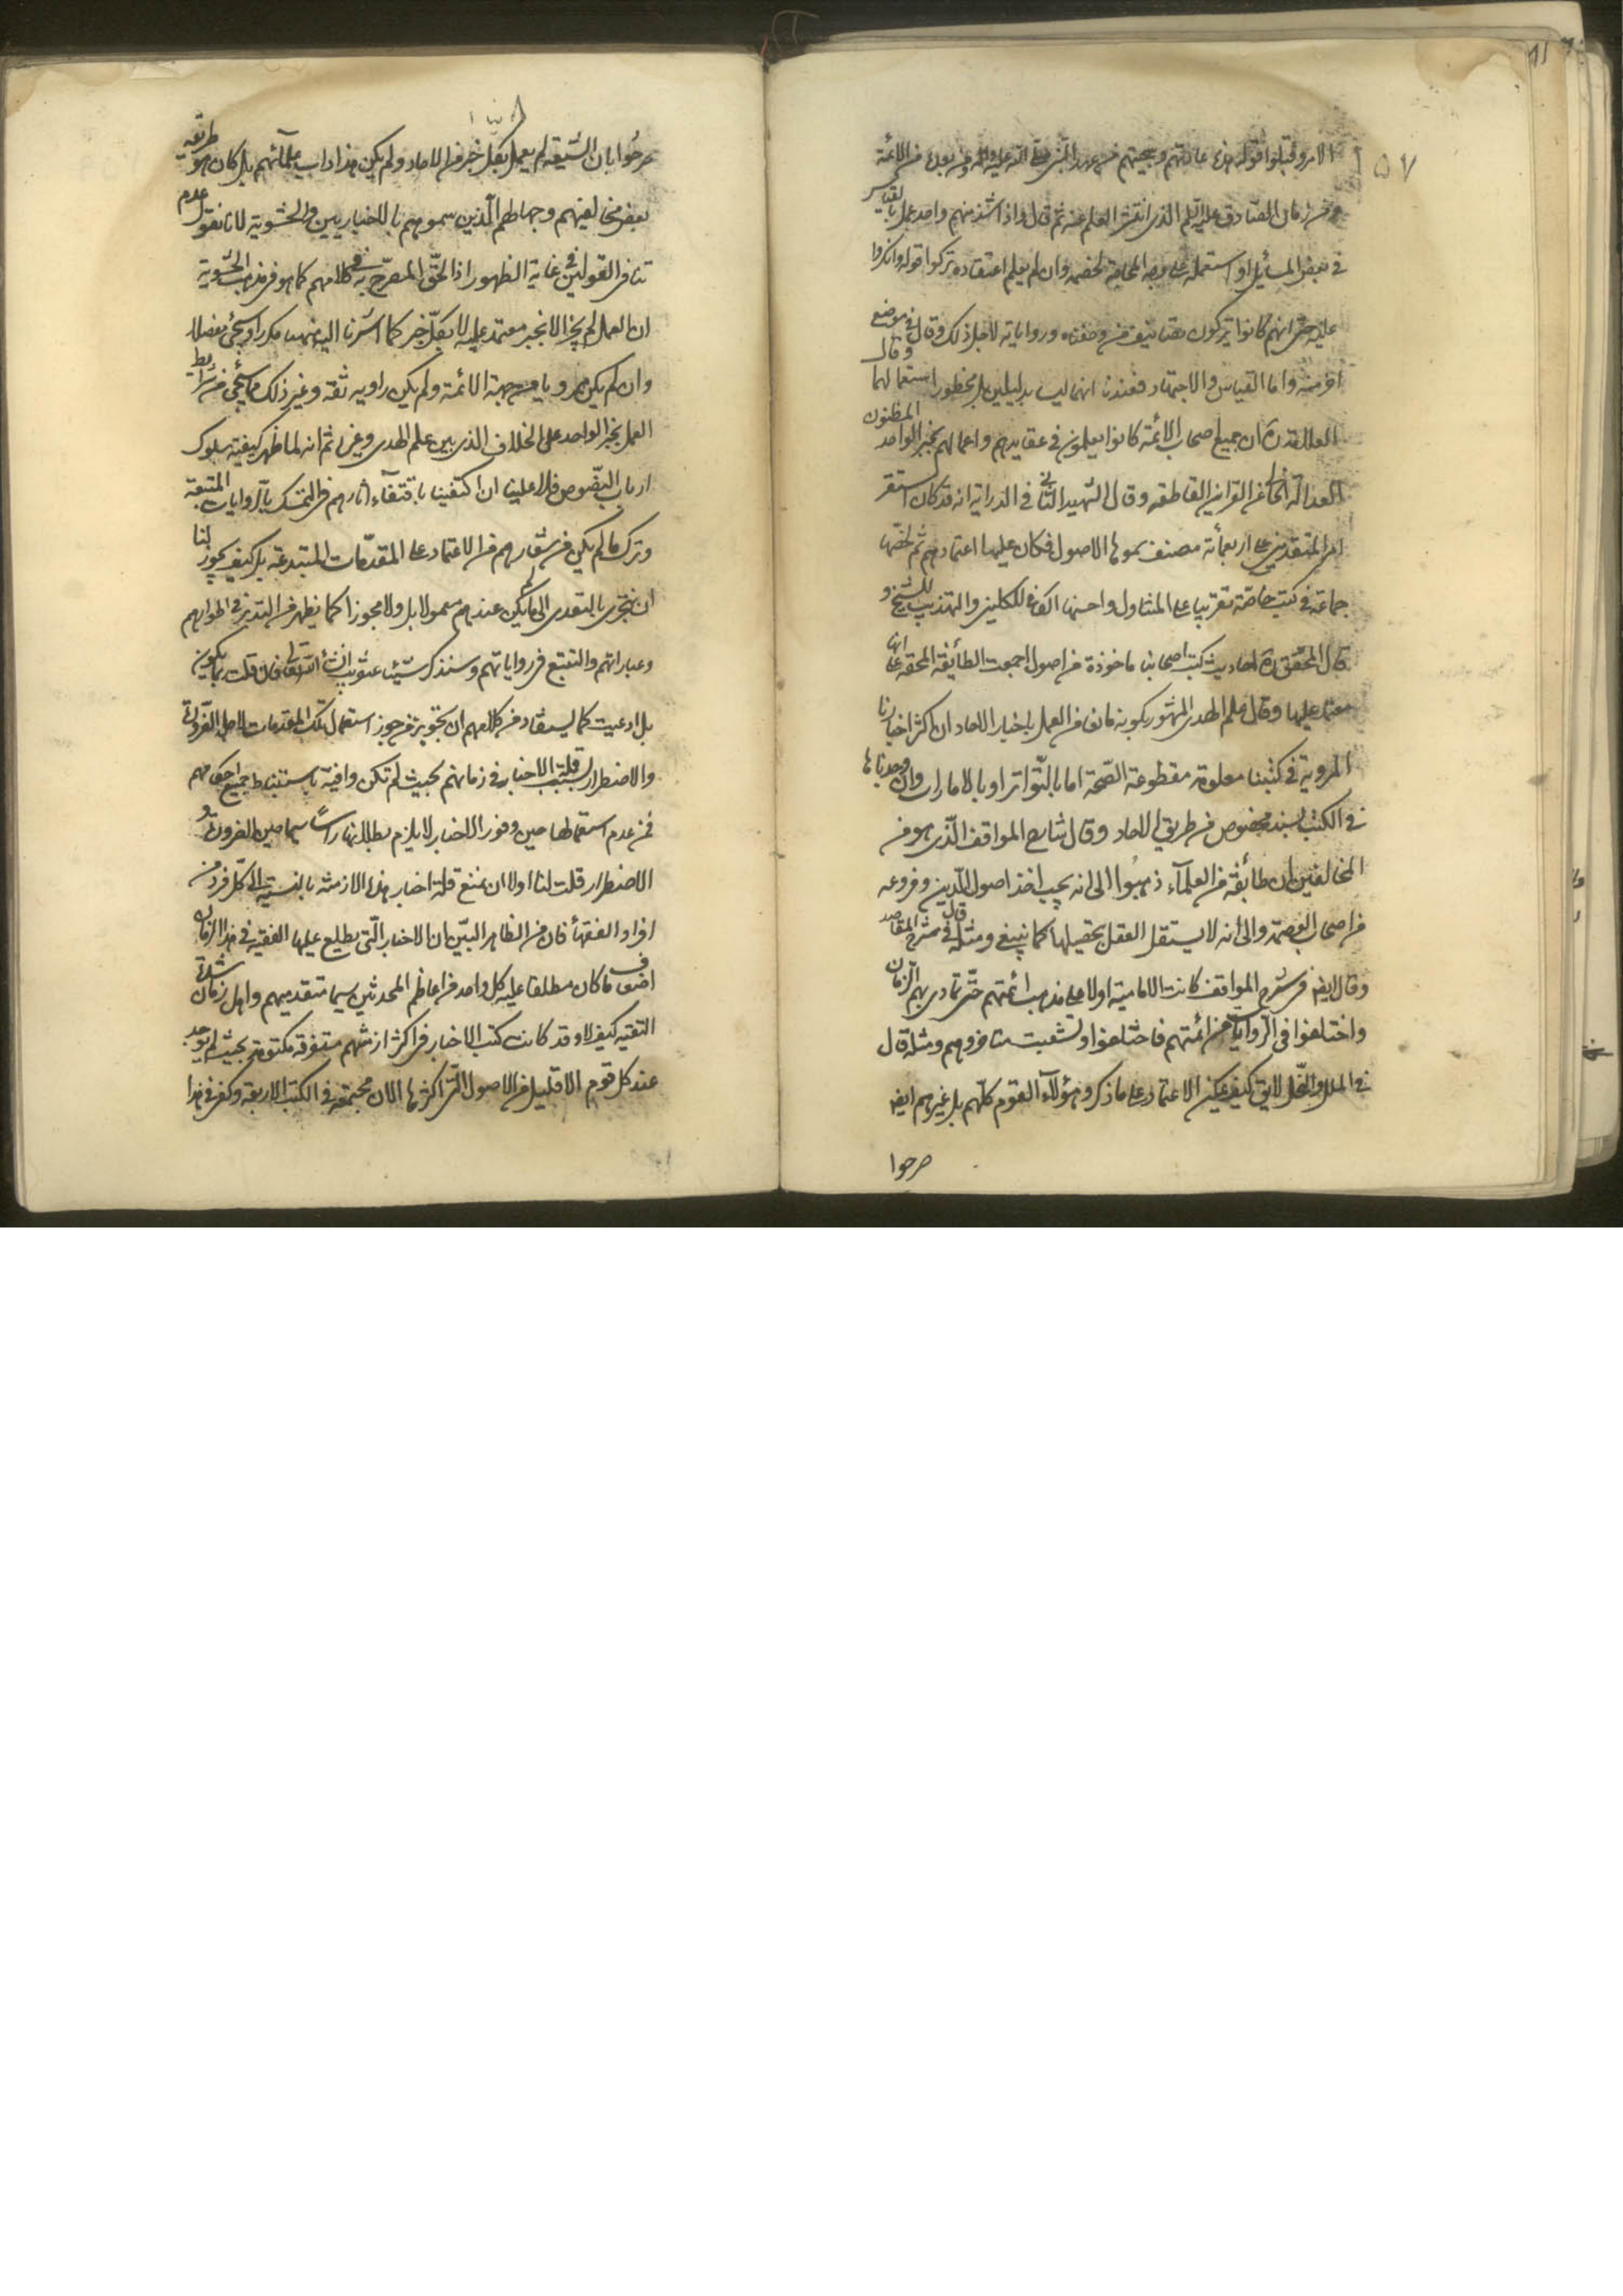 ٥٧
الامر وقبلوا قوله هذه عادتهم وسجيتهم من عهد النبي صلى الله عليه واله ومن بعده من الائمة
ومن زمان الصادق عليه السلم الذي انتشر العلم عنه ثم قال واذا شذ منهم واحد عمل بالقياس
في بعض المسائل او استعمله على وجه المحاجة لخصمه وان لم يعلم اعتقاده تركوا قوله وانكروا
عليه حتى انهم كانوا يتركون تصانيف من وصفناه ورواياته لاجل ذلك وقال في موضع
اخر منه واما القياس والاجتهاد فعندنا انهما ليسا بدليلين بل محظور استعمالهما وقال
العلامة ان جميع اصحاب الائمة كانوا يعملون في عقايدهم واعمالهم بخبر الواحد المظنون
العدالة الخالي عن القراين القاطعة وقال الشهيد الثاني في الدراية انه قد كان استقر
امر المتقدمين على اربعمائة مصنف سموها الاصول فكان عليها اعتمادهم ثم لخصها
جماعة في كتب خاصة تقريبا على المتناول واحسنها الكافي للكليني والتهذيب للشيخ و
قال المحقق احاديث كتب اصحابنا ماخوذة من اصول اجمعت الطائفة المحقة على انها
معتمد عليها وقال علم الهدى المشهور بكونه مانعا من العمل باخبار الاحاد ان اكثر اخبارنا
المروية في كتبنا معلومة مقطوعة الصحة اما بالتواتر او بالامارات وان وجدناها
في الكتب بسند مخصوص من طريق الاحاد وقال شارح المواقف الذي هو من
المخالفين ان طائفة من العلماء ذهبوا الى انه يجب اخذ اصول الدين وفروعه
من اصحاب العصمة والى انه لا يستقل العقل بتحصيلها كما ينبغي ومثله قال في شرح المقاصد
وقال ايضا في شرح المواقف كانت الامامية اولا على مذهب ائمتهم حتى تمادى بهم الزمان
واختلفوا في الروايات عن ائمتهم فاختلفوا وتشعبت متاخروهم ومثله قال
في الملل والنحل لايق كيف يمكن الاعتماد على ما ذكره هؤلاء القوم كلهم بل غيرهم ايضا
صرحوا
صرحوا بان الشيعة لم يعمل بكل خبر من الاحاد ولم يكن هذا داب علمائهم بل كان هو طريقة
بعض مخالفيهم وجهالهم الذين سموهم بالاخباريين والحشوية لانا نقول عدم
تنافي القولين في غاية الظهور اذ الحق المصرح به في كلامهم كما هو في مذهب الحشوية
ان العمل لم يجز الا بخبر معتمد عليه لا بكل خبر كما اشرنا اليه مكررا وسيجئ مفصلا
وان لم يكن مرويا من جهة الائمة ولم يكن راويه ثقة وغير ذلك مما سيجئ من شرايط
العمل بخبر الواحد على الخلاف الذي بين علم الهدى وغيره ثم انه لما ظهر كيفية سلوك
ارباب النصوص فلا علينا ان اكتفينا باقتفاء اثارهم في التمسك بالروايات المتبعة
وترك ما لم يكن من شعارهم من الاعتماد على المقدمات المبتدعة بل كيف يجوز لنا
ان نجترى بالتعدى الى ما لم يكن عندهم معمولا بل ولا مجوزا كما يظهر من التدبر في اطوارهم
وعباراتهم والتتبع في رواياتهم وسنذكر شيئا انشاء الله تعالى فان قلت بما يكون
بل ادعيت كما يستفاد من كلامهم ان تجويز من جوز استعمال تلك المقدمات لاجل الضرورة
والاضطرار بسبب قلة الاخبار في زمانهم بحيث لم تكن وافية باستنباط جميع احكامهم
فمن عدم استعمالها حين وفور الاخبار لا يلزم بطلانها راسا سيما حين الضرورة و
الاضطرار قلت لنا اولا ان نمنع قلة اخبار هذه الازمنة بالنسبة الى كل فرد من
افراد الفقهاء فان من الظاهر البين ان الاخبار التي يطلع عليها الفقيه في هذا الزمان
اضعاف ما كان مطلعا عليه كل واحد من اعاظم المحدثين سيما متقدميهم واهل زمان شدة
التقية كيف لا وقد كانت كتب الاخبار في اكثر ازمنتهم متفرقة مكتومة بحيث لم توجد
عند كل قوم الا قليل من الاصول التي اكثرها الان مجتمعة في الكتب الاربعة وكفى في هذا